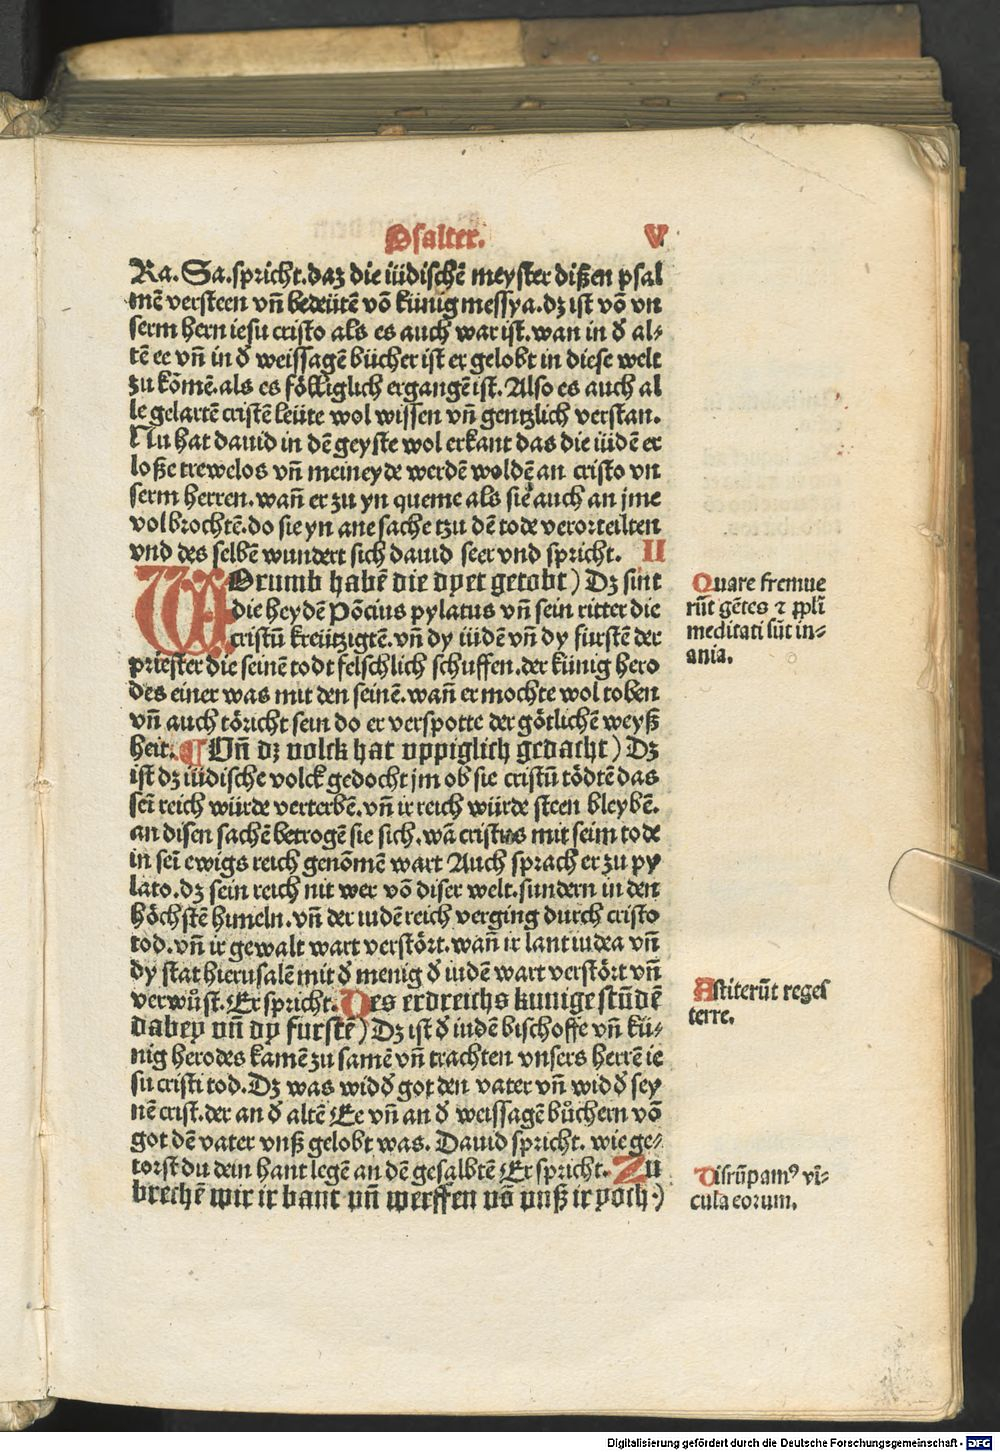 Psalter. V
Ra. Sa. spricht. daz die iüdischē meyster dißen psal
mē versteen vñ bedeütē vō künig messya. dz ist vō vn
serm hern iesu cristo als es auch war ist. wan in d̄ al⸗
tē ee vñ in d̄ weissagē bücher ist er gelobt in diese welt
zu kōmē. als es völliglich ergangē ist. Also es auch al
le gelartē cristē leüte wol wissen vñ gentzlich verstan.
Nu hat dauid in dē geyste wol erkant das die iüdē er
loße trewelos vñ meineyde werdē woldē an cristo vn
serm herren. wañ er zu yn queme als sie auch an jme
volbrochtē. do sie yn ane sache tzu dē tode verorteilten
vnd des selbē wundert sich dauid seer vnd spricht. II
WOrumb habē die dyet getobt) Dz sint
die heydē Pōcius pylatus vñ sein ritter die
cristū kreützigtē. vñ dy iüdē vñ dy fürstē der
priester die seinē todt felschlich schuffen. der künig hero
des einer was mit den seinē. wañ er mochte wol toben
vñ auch töricht sein do er verspotte der götlichē weyß
heit. ¶ Vñ dz volck hat vppiglich gedacht) Dz
ist dz iüdische volck gedocht jm ob sie cristū tödtē das
sei reich würde verterbē. vñ ir reich würde steen bleybē.
an disen sachē betrogē sie sich. wā cristus mit seim tode
in sei ewigs reich genōmē wart Auch sprach er zu py
lato. dz sein reich nit wer vō diser welt. sundern in den
höchstē himeln. vñ der iudē reich verging durch cristo
tod. vñ ir gewalt wart verstört. wañ ir lant iudea vñ
dy stat hierusalē mit d̄ menig d̄ iudē wart verstört vñ
verwůst. Er spricht. Des erdreichs kunige stūdē
dabey vñ dy furstē) Dz ist d̄ iudē bischoffe vñ kü⸗
nig herodes kamē zu samē vñ trachten vnsers herrē ie
su cristi tod. Dz was widd̄ got den vater vñ widd̄ sey
nē crist. der an d̄ altē Ee vñ an d̄ weissagē bůchern vō
got dē vater vnß gelobt was. Dauid spricht. wie ge⸗
torst du dein hant legē an dē gesalbtē Er spricht. Zu
brechē wir ir bant vñ werffen vō vnß ir yoch·)
Quare fremue
rūt gētes ⁊ ꝓpl̄i
meditati sūt in⸗
ania.
Astiterūt reges
terre.
Disrūpamꝰ vī⸗
cula eorum.
Digitalisierung gefördert durch die Deutsche Forschungsgemeinschaft - DFG